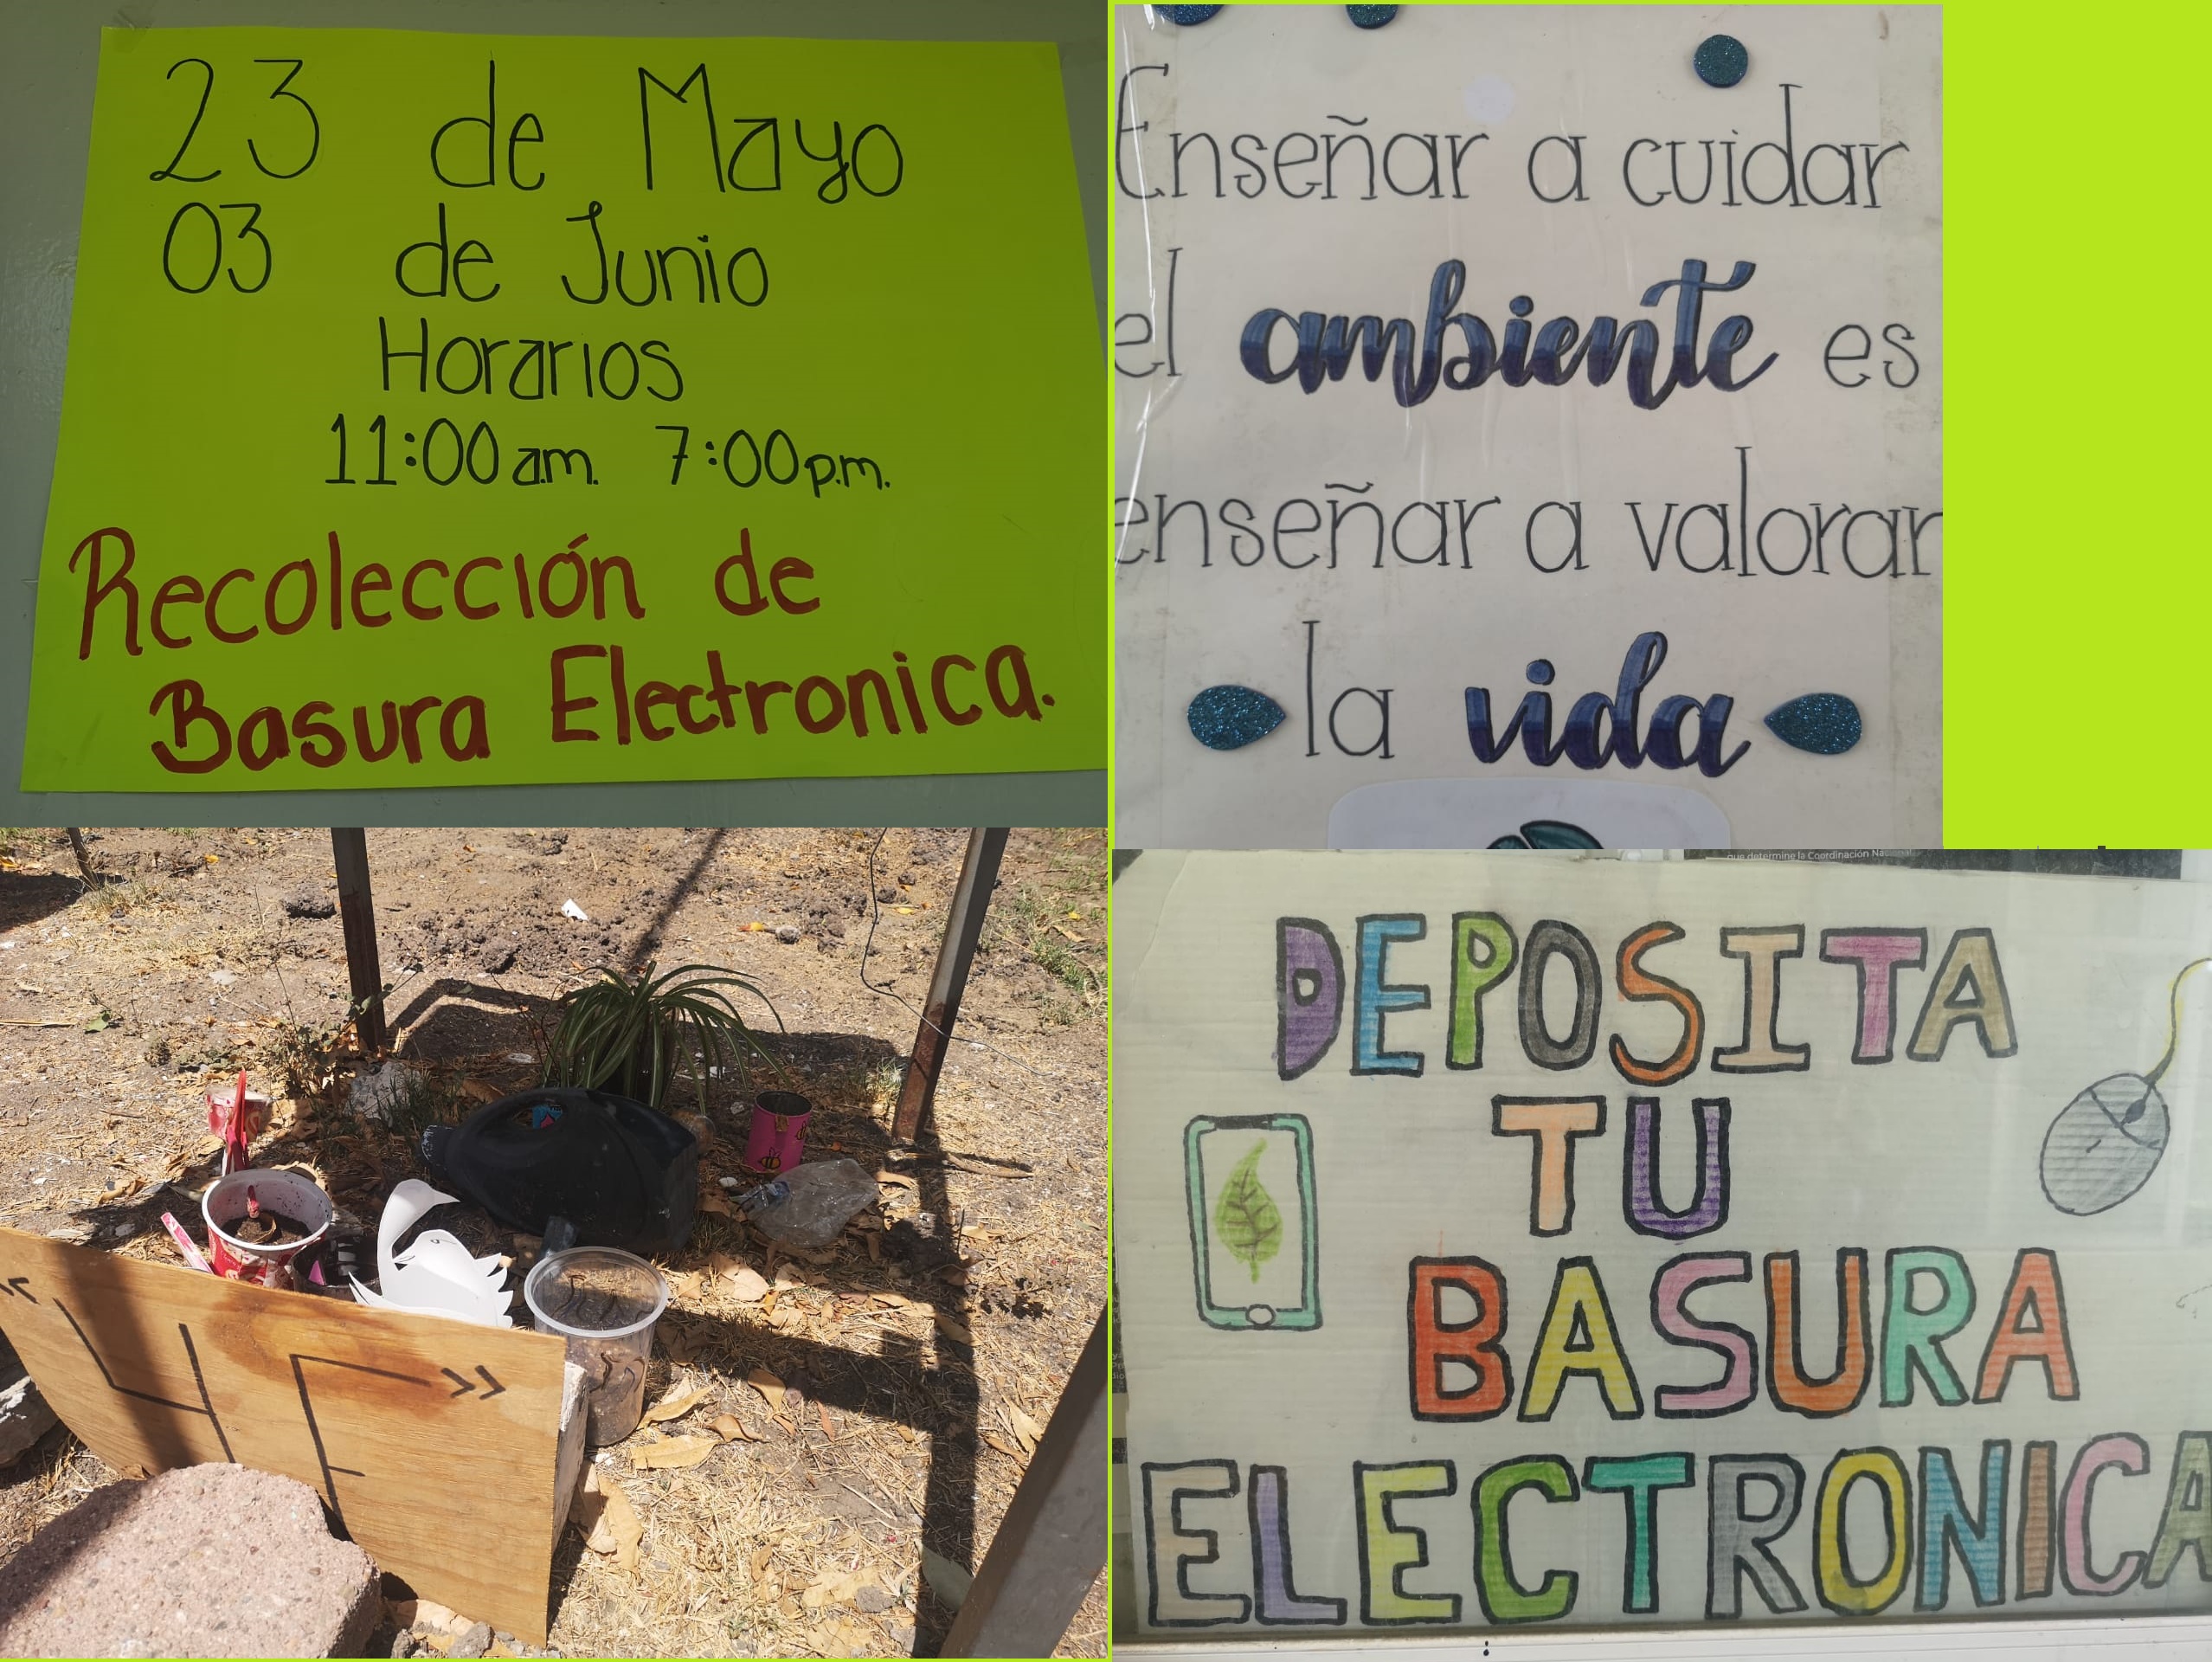 23 de Mayo
03 de Junio
Horarios
11:00 a.m. 7:00 p.m.
Recolección de
Basura Electronica.
Enseñar a cuidar
el ambiente es
enseñar a valorar
la vida
"4F"
que determine la Coordinación
DEPOSITA
TU
BASURA
ELECTRONICA